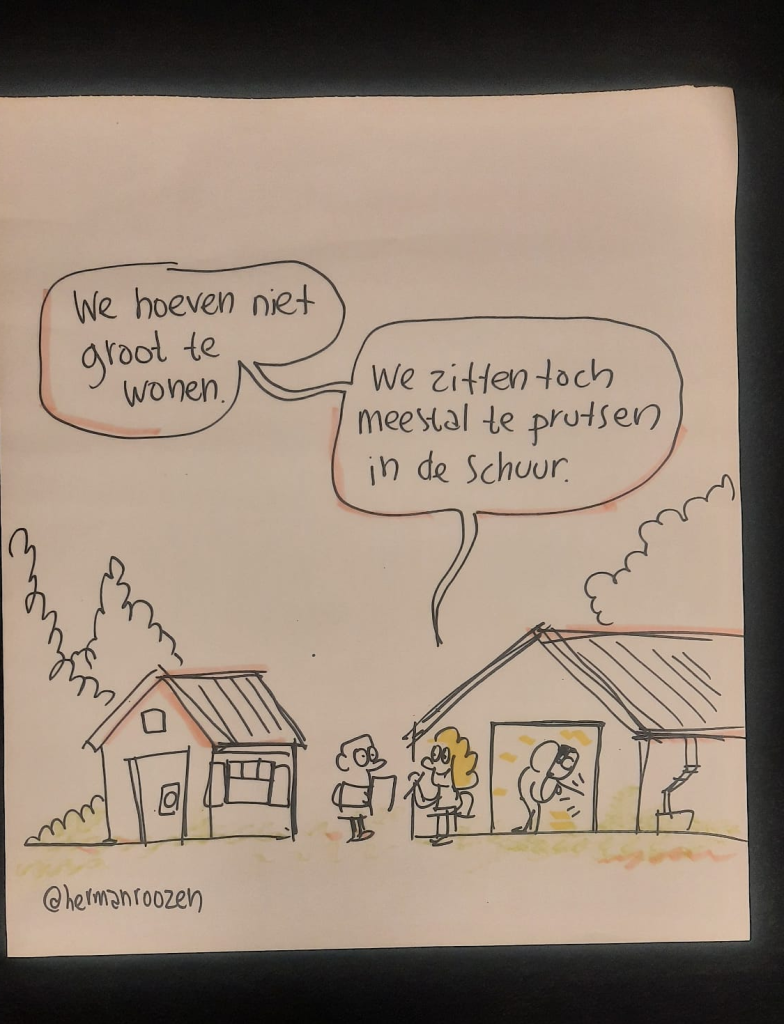 We hoeven niet
groot te
wonen.
We zitten toch
meestal te prutsen
in de schuur.
@hermanroozen